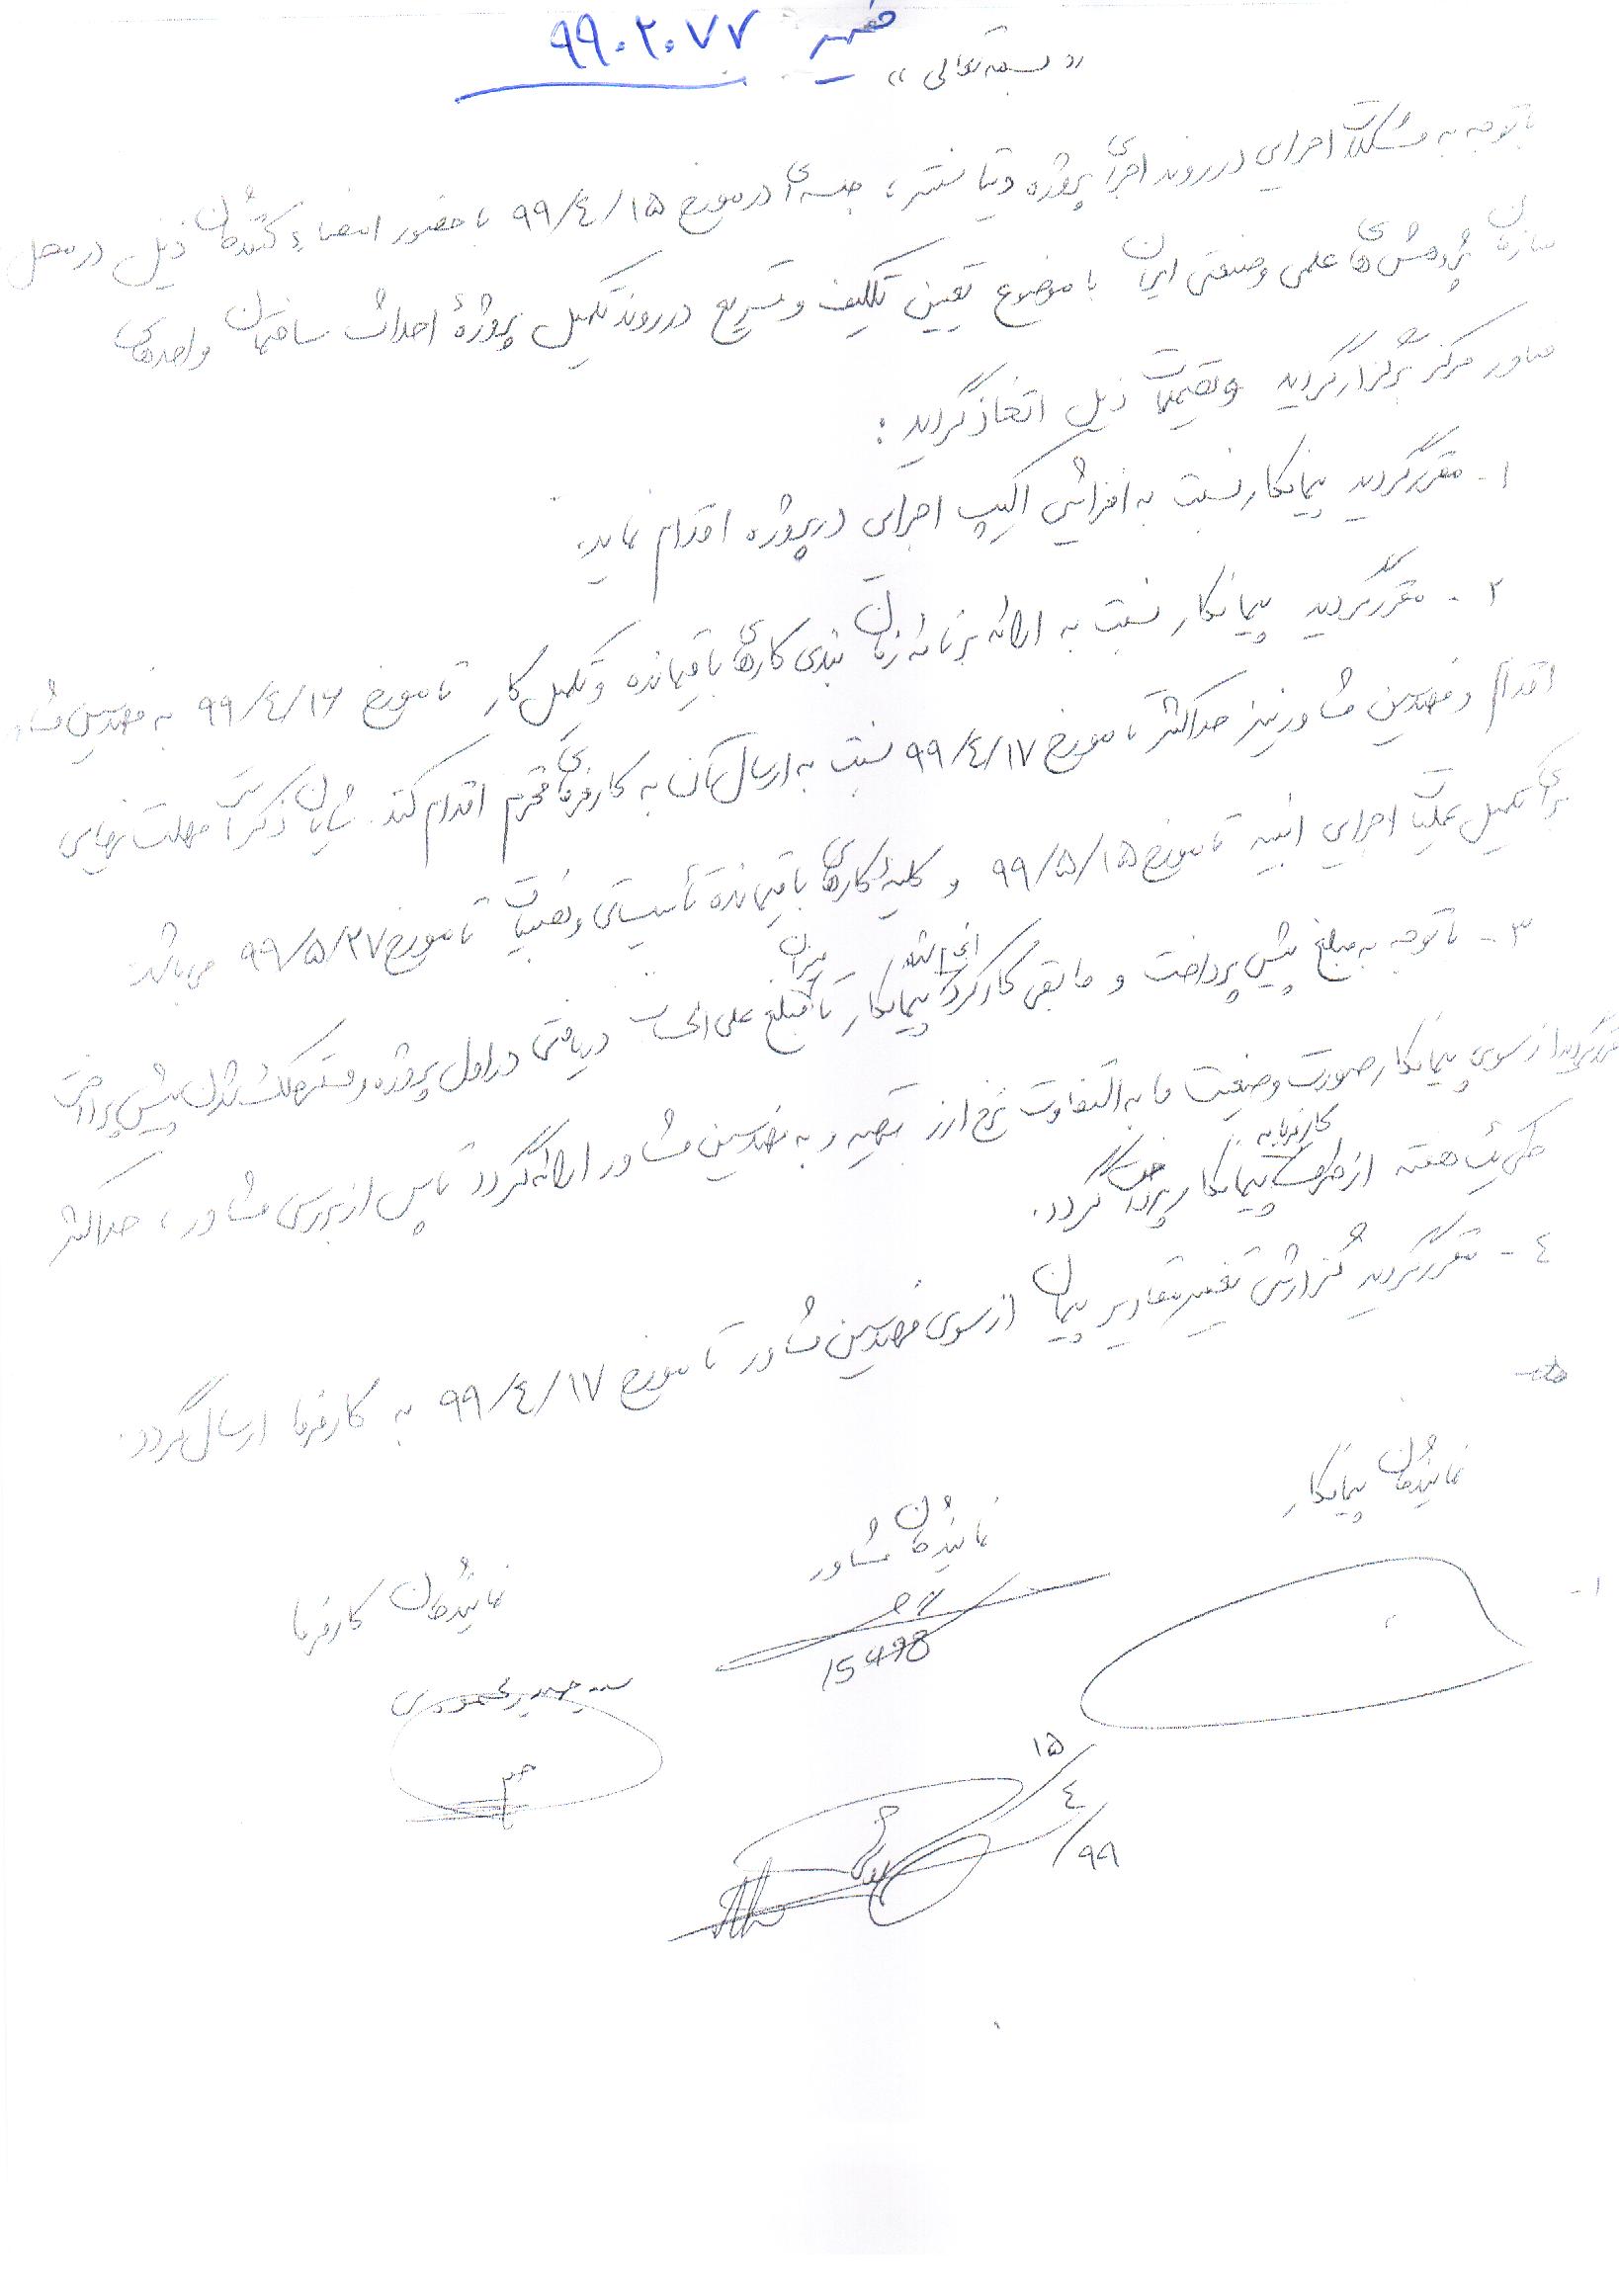 ضمیمه ۹۹۰۲۰۷۷
«بسمه تعالی»
با توجه به مشکلات اجرایی در روند اجرای پروژه دیتا سنتر، جلسه‌ای در مورخ ۹۹/۴/۱۵ با حضور امضاء کنندگان ذیل در محل
سازمان پژوهش‌های علمی و صنعتی ایران با موضوع تعیین تکلیف و تسریع در روند تکمیل پروژهٔ احداث ساختمان واحدهای
مرکز برگزار گردید و تصمیمات ذیل اتخاذ گردید:
۱- مقرر گردید پیمانکار نسبت به افزایش اکیپ اجرایی در پروژه اقدام نماید.
۲- مقرر گردید پیمانکار نسبت به ارائه برنامه زمان بندی کارهای باقیمانده و تکمیل کار تا مورخ ۹۹/۴/۱۶ به مهندسین مشاور
اقدام و مهندسین مشاور نیز حداکثر تا مورخ ۹۹/۴/۱۷ نسبت به ارسال آن به کارفرمای محترم اقدام کند. شایان ذکر است مهلت نهایی
برای تکمیل عملیات اجرایی ابنیه تا مورخ ۹۹/۵/۱۵ و کلیهٔ کارهای باقیمانده تأسیساتی و نصبیات تا مورخ ۹۹/۵/۲۷ می‌باشد.
۳- با توجه به مبلغ پیش پرداخت و مابقی کارکرد انجام شده پیمانکار تا میزان مبلغ علی الحساب دریافتی در اول پروژه و مستهلک شدن پیش پرداخت
مقرر گردید از سوی پیمانکار صورت وضعیت مابه التفاوت نرخ ارز تهیه و به مهندسین مشاور ارائه گردد تا پس از بررسی مشاور، حداکثر
طی یک هفته از طرف کارفرما به پیمانکار پرداخت گردد.
۴- مقرر گردید گزارش تغییر مقادیر پیمان از سوی مهندسین مشاور تا مورخ ۹۹/۴/۱۷ به کارفرما ارسال گردد.
نمایندگان پیمانکار
نمایندگان مشاور
نمایندگان کارفرما
۱-
15498
۱۵/۴/۹۹